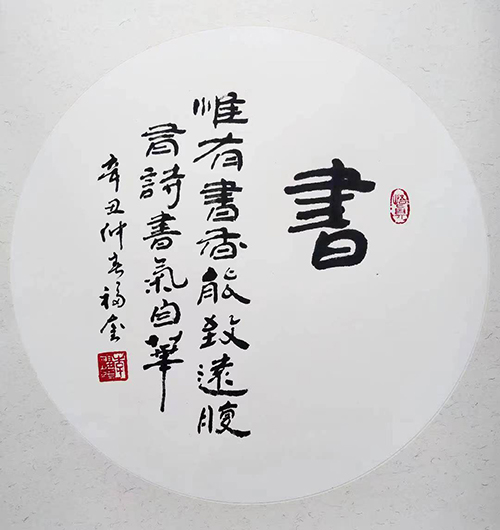 書
惟有書香能致遠腹
有詩書氣自華
辛丑仲春福